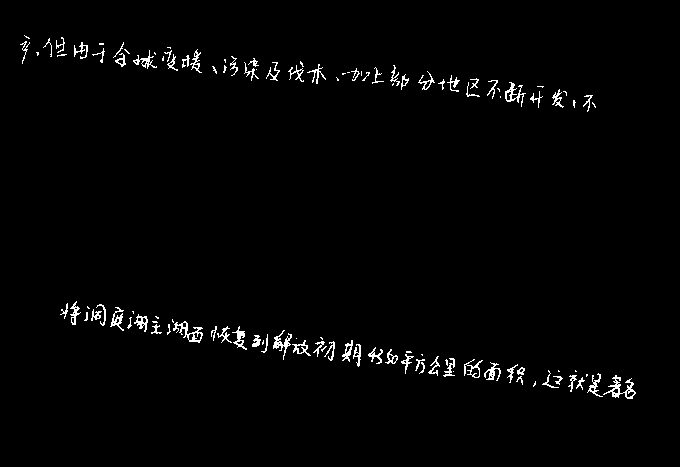 亨,但由于全球变暖、污染及伐木、加上部分地区不断开发,不
将洞庭湖主湖面恢复到解放初期4350平方公里的面积,这就是著名